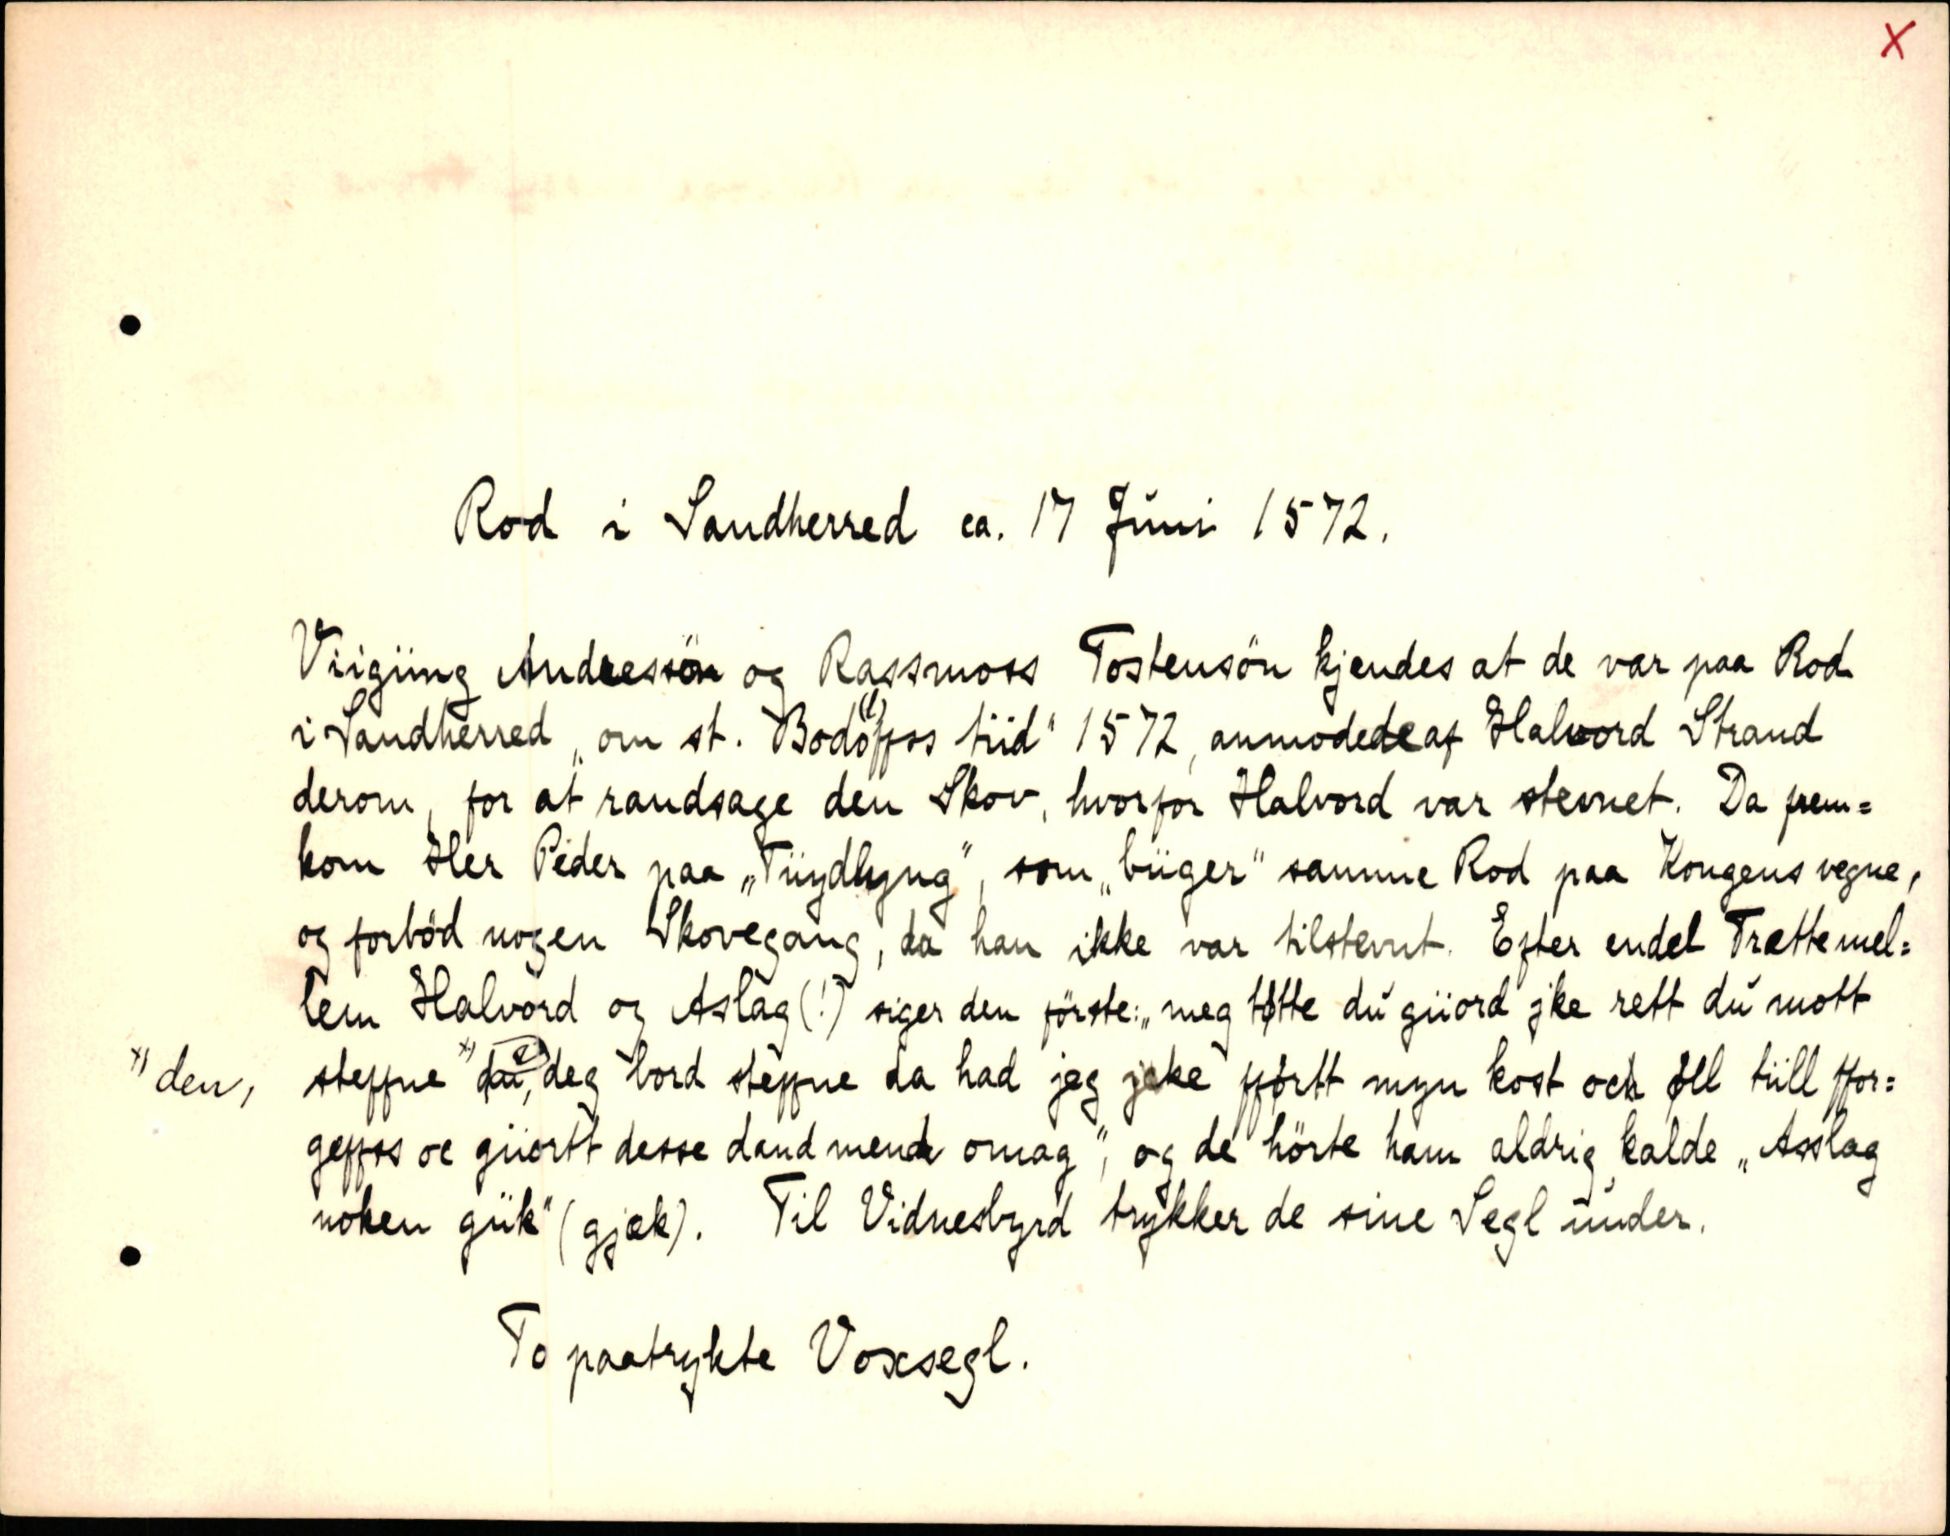 X
Rod i Sandherred ca. 17 Juni 1572.
Viigüng Andressön og Rassmoss Tostensön kjendes at de var paa Rod
i Sandherred „om st. Bodö(l)ffss tiid" 1572, anmodede af Halvord Strand
derom, for at randsage den Skov, hvorfor Halvord var stevnet. Da frem=
kom Her Peder paa „Tüydlyng", som „büger" samme Rod paa Kongens vegne,
og forbød nogen Skovegang, da han ikke var tilstevnt. Efter endel Trætte mel=
lem Halvord og Aslag (!) siger den förste: „meg tøtte du giiord jke rett du mott
steffne x) deg bord steffne da had jeg jcke ffört myn kost och øll tiill ffor=
geffss oc giiortt desse dand mend omag", og de hörte ham aldrig kalde „Asslag
noken giik" (gjæk). Til Vidnesbyrd trykker de sine Segl under.
x) den,
To paatrykte Voxsegl.